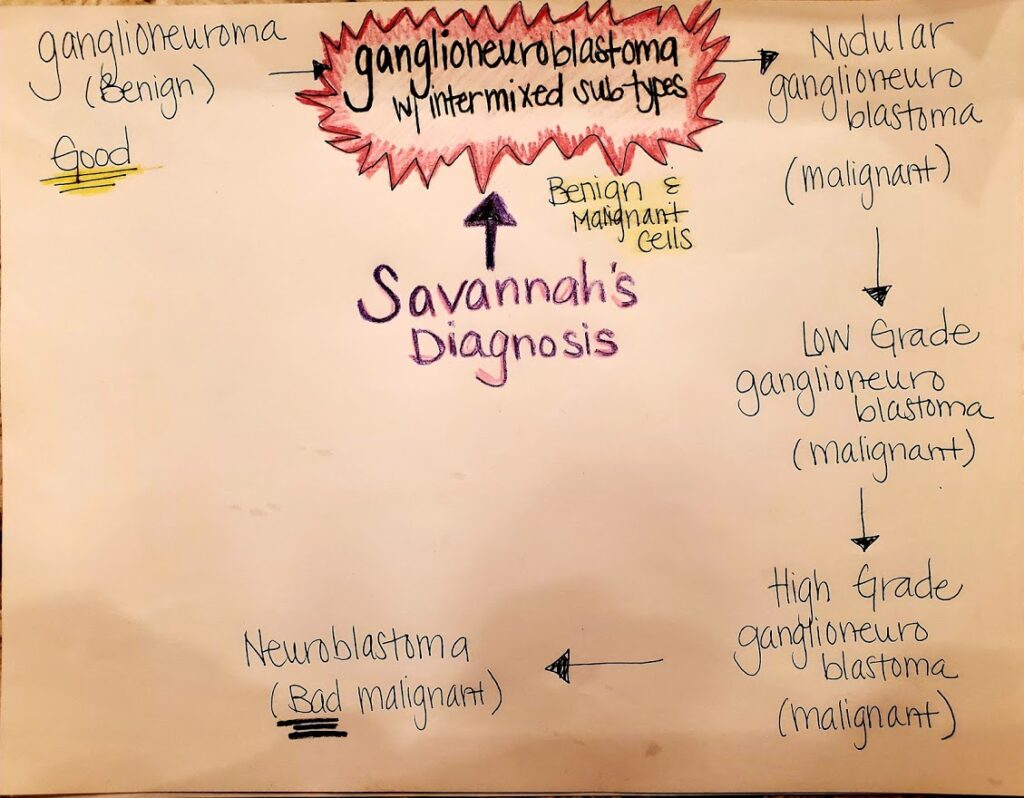 ganglioneuroma
(Benign)
Good
ganglioneuroblastoma
w/ intermixed subtypes
Benign &
Malignant
Cells
Savannah's
Diagnosis
Nodular
ganglioneuro
blastoma
(malignant)
Low Grade
ganglioneuro
blastoma
(malignant)
High Grade
ganglioneuro
blastoma
(malignant)
Neuroblastoma
(Bad malignant)